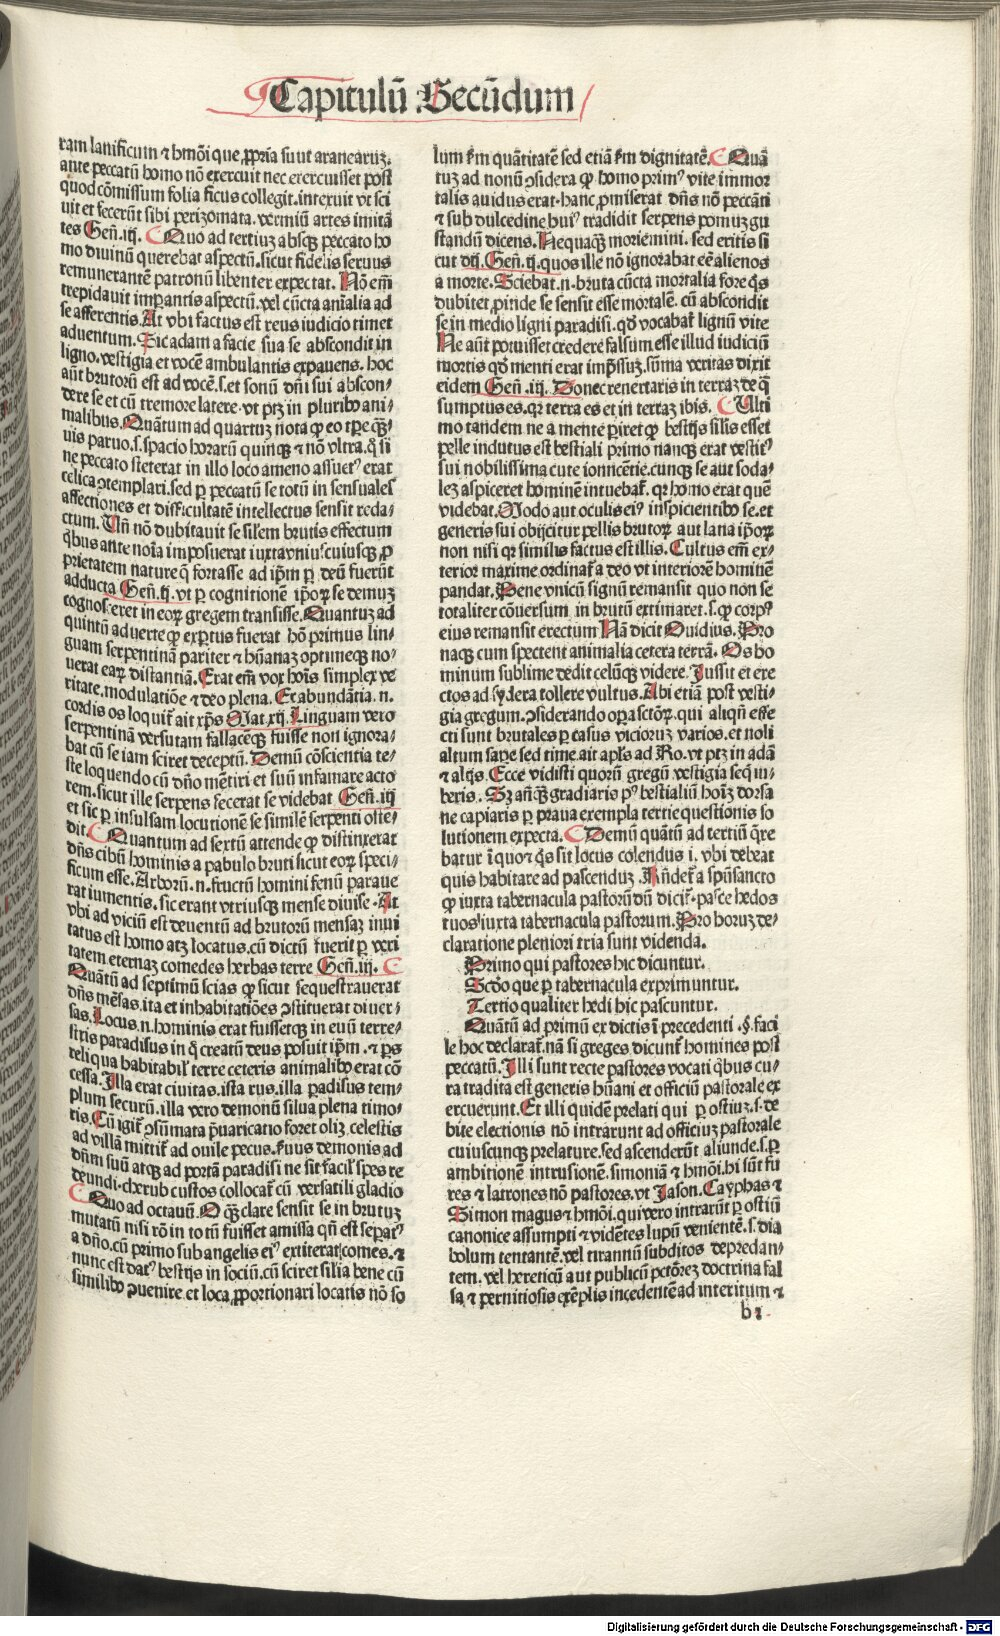 Capitulū Secūdum
ram lanificum ⁊ hmōi que ꝓpria sunt aranearuꝫ.
ante peccatū homo nō exercuit nec exercuisset post
quod cōmissum folia ficus collegit. intexuit vt sci
uit et fecerūt sibi perizomata. vermiū artes imitā
tes Geñ. iij. Quo ad tertiuꝫ absqꝫ peccato ho
mo diuinū querebat aspectū. sicut fidelis seruus
remunerantē patronū libenter expectat. Nō em̄
trepidauit imꝑantis aspectū. vel cūcta aīalia ad
se afferentis. At vbi factus est reus iudicio timet
aduentum. Sic adam a facie sua se abscondit in
ligno. vestigia et vocē ambulantis expauens. hoc
aūt brutorū est ad vocē. s. et sonū dn̄i sui abscon⸗
dere se et cū tremore latere. vt ptꝫ in pluribꝰ ani⸗
malibus. Quantum ad quartuꝫ nota ꝙ eo tꝑe qꝫ⸗
uis paruo. s. spacio horarū quinqꝫ ⁊ nō vltra. ꝙ si
ne peccato steterat in illo loco ameno assuetꝰ erat
celica ꝯtemplari. sed ꝑ peccatū se totū in sensuales
affectiones et difficultatē intellectus sensit reda⸗
ctum. Vn̄ nō dubitauit se silem brutis effectum
q̄bus ante noīa imposuerat iuxta vniꝰcuiusqꝫ ꝓ
prietatem nature q̄ fortasse ad ip̄m ꝑ deū fuerūt
adducta Geñ. ij. vt ꝑ cognitionē ip̄oꝝ se demuꝫ
cognosceret in eoꝝ gregem transisse. Quantuꝫ ad
quintū aduerte ꝙ exꝑtus fuerat hō primus lin⸗
guam serpentinā pariter ⁊ hūanaꝫ optuneqꝫ no⸗
uerat eaꝝ distantiā. Erat em̄ vox hoīs simplex ve
ritate. modulatiōe ⁊ deo plena. Ex abundātia. n.
cordis os loquit̄ ait xp̄s Mat. xij. Linguam vero
serpentinā versutam fallacēqꝫ fuisse non ignora⸗
bat cū se iam sciret deceptū. Demū cōscientia te⸗
ste loquendo cū dn̄o mētiri et suū infamare acto
rem. sicut ille serpens fecerat se videbat Geñ. iij
et sic ꝑ insulsam locutionē se similē serpenti oste⸗
dit. Quantum ad sextū attende ꝙ distinxerat
dn̄s cibū hominis a pabulo bruti sicut eoꝝ speci⸗
ficum esse. Arborū. n. fructū homini fenū paraue
rat iumentis. sic erant vtriusqꝫ mense diuise. At
vbi ad viciū est deuentū ad brutorū mensaꝫ inui
tatus est homo atqꝫ locatus. cū dictū fuerit ꝑ veri
tatem eternaꝫ comedes herbas terre Geñ. iij.
Quātū ad septimū scias ꝙ sicut sequestrauerat
dn̄s mēsas. ita et inhabitatiōes ꝯstituerat diuer⸗
sas. Locus. n. hominis erat fuissetqꝫ in euū terre⸗
stris paradisus in q̄ creatū deus posuit ip̄m. ⁊ ꝑs
reliqua habitabilꝭ terre ceteris animalibꝰ erat cō
cessa. Illa erat ciuitas. ista rus. illa ꝑadisus tem⸗
plum securū. illa vero demonū silua plena timo⸗
ris. Cū igit̄ ꝯsūmata p̄uaricatio foret oliꝫ celestis
ad villā mittit̄ ad ouile pecus. seruus demonis ad
dn̄m suū atqꝫ ad portā paradisi ne sit facilꝭ spes re
deundi. cherub custos collocat̄ cū versatili gladio
Quo ad octauū. O qꝫ clare sensit se in brutuꝫ
mutatū nisi rō in totū fuisset amissa qn̄ est seꝑatꝰ
a dn̄o. cū primo sub angelis eiꝰ extiterat comes. ⁊
nunc est datꝰ bestijs in sociū. cū sciret silia bene cū
similibꝰ ꝯuenire. et loca ꝓportionari locatis nō so
lum ẜm quātitatē sed etiā ẜm dignitatē. Quā
tuꝫ ad nonū ꝯsidera ꝙ homo primꝰ vite immor
talis auidus erat. hanc ꝓmiserat dn̄s nō peccāti
⁊ sub dulcedine huiꝰ tradidit serpens pomuꝫ gu
standū dicens. Nequaqꝫ moriemini. sed eritis si
cut dij. Geñ. ij. quos ille nō ignorabat eē alienos
a morte. Sciebat. n. bruta cūcta mortalia fore q̄s
dubitet ꝓinde se sensit esse mortalē. cū abscondit
se in medio ligni paradisi. qd̄ vocabat̄ lignū vite
Ne aūt potuisset credere falsum esse illud iudiciū
mortis qd̄ menti erat imp̄ssuꝫ. sūma veritas dixit
eidem Geñ. iij. Donec reuertaris in terraꝫ de q̄
sumptus es. qꝛ terra es et in terraꝫ ibis. Ulti
mo tandem ne a mente ꝑiret ꝙ bestijs silis esset
pelle indutus est bestiali primo nanqꝫ erat vestitꝰ
sui nobilissima cute ionncētie. cunqꝫ se aut soda⸗
leꝫ aspiceret hominē intuebat̄. qꝛ homo erat quē
videbat. Modo aut oculis eiꝰ inspicientibꝰ se. et
generis sui obijcitur pellis brutoꝝ aut lana ip̄oꝝ
non nisi qꝛ similis factus est illis. Cultus em̄ ex⸗
terior maxime ordinat̄ a deo vt interiorē hominē
pandat. Bene vnicū signū remansit quo non se
totaliter cōuersum in brutū extimaret. s. ꝙ corpꝰ
eius remansit erectum Nā dicit Ouidius. Pro
naqꝫ cum spectent animalia cetera terrā. Os ho
minum sublime dedit celūqꝫ videre. Jussit et ere
ctos ad sydera tollere vultus. Abi etiā post vesti⸗
gia gregum. ꝯsiderando oꝑa sctōꝝ. qui aliqn̄ effe
cti sunt brutales ꝑ casus vicioruꝫ varios. et noli
altum saꝑe sed time. ait apl̄s ad Ro. vt ptꝫ in adā
⁊ alijs. Ecce vidisti quorū gregū vestigia seq̄ iu⸗
beris. Sꝫ anqꝫ gradiaris pꝰ bestialiū hoīꝫ dorsa
ne capiaris ꝑ praua exempla tertie questionis so
lutionem expecta. Demū quātū ad tertiū q̄re
batur ī quo ⁊ q̄s sit locus colendus i. vbi debeat
quis habitare ad pascenduꝫ. Rn̄det̄ a spūsancto
ꝙ iuxta tabernacula pastorū dū dicit̄. pasce hedos
tuos iuxta tabernacula pastorum. Pro horuꝫ de⸗
claratione pleniori tria sunt videnda.
Primo qui pastores hic dicuntur.
Scdo que ꝑ tabernacula exprimuntur.
Tertio qualiter hedi hic pascuntur.
Quātū ad primū ex dictis ī precedenti. §. faci
le hoc declarat̄. nā si greges dicunt̄ homines post
peccatū. Illi sunt recte pastores vocati q̄bus cu⸗
ra tradita est generis hūani et officiū pastorale ex
ercuerunt. Et illi quidē prelati qui ꝑ ostiuꝫ. s. de
bite electionis nō intrarunt ad officiuꝫ pastorale
cuiuscunqꝫ prelature. sed ascenderūt aliunde. s. ꝑ
ambitionem intrusionē. simoniā ⁊ hmōi. hi sūt fu
res ⁊ latrones nō pastores. vt Jason. Cayphas ⁊
Simon magus ⁊ hmōi. qui vero intrarūt ꝑ ostiū
canonice assumpti ⁊ vidētes lupū venientē. s. dia
bolum tentantē. vel tirannū subditos depredan⸗
tem. vel hereticū aut publicū pctōreꝫ doctrina fal
sa ⁊ perniciosis exēplis incedentē ad interitum ⁊
b 2
Digitalisierung gefördert durch die Deutsche Forschungsgemeinschaft - DFG